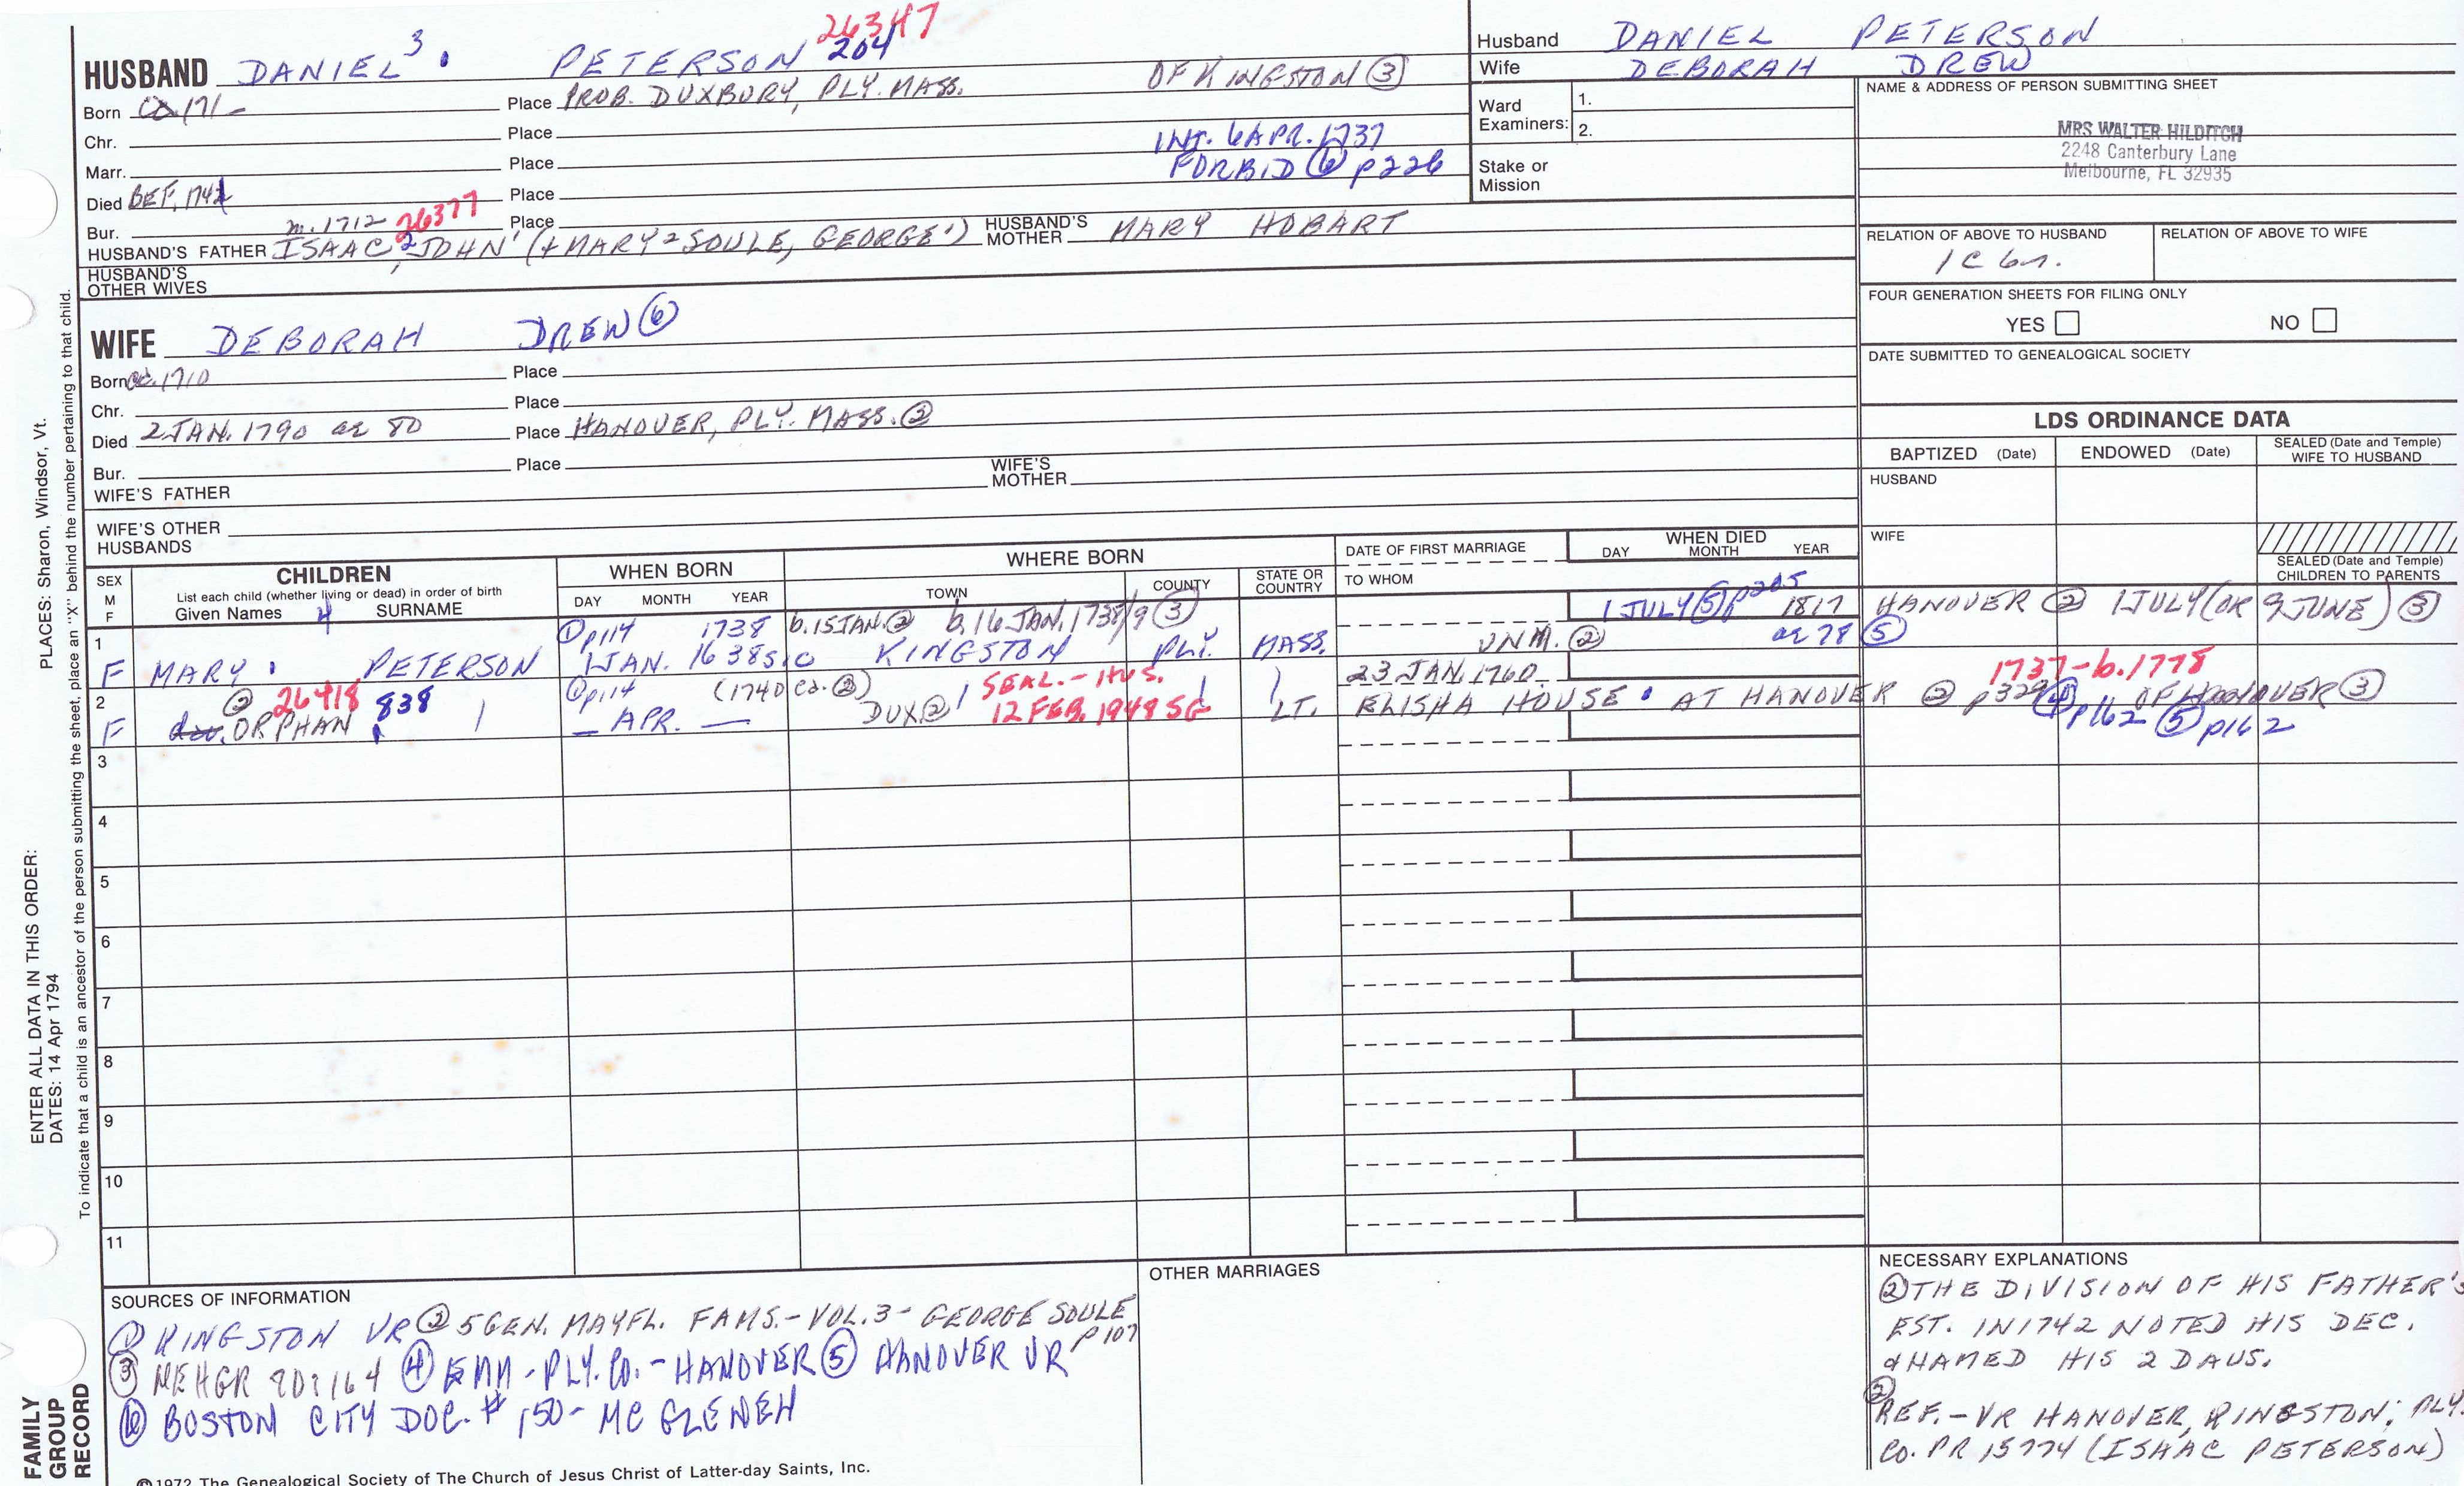 26347
HUSBAND DANIEL³ • PETERSON 204
OF KINGSTON ③
Born ca 171- Place PROB. DUXBURY, PLY. MASS.
Chr. Place
INT. 6 APR. 1737
Marr. Place
FORBID ⑥ p226
Died BEF. 1742 Place
Bur. m. 1712 26377 Place
HUSBAND'S FATHER ISAAC², JOHN¹ (+ MARY² SOULE, GEORGE¹) HUSBAND'S MOTHER MARY HOBART
HUSBAND'S OTHER WIVES
WIFE DEBORAH DREW ⑥
Born ca. 1710 Place
Chr. Place
Died 2 JAN. 1790 ae 80 Place HANOVER, PLY. MASS. ②
Bur. Place
WIFE'S FATHER WIFE'S MOTHER
WIFE'S OTHER HUSBANDS
Husband DANIEL PETERSON
Wife DEBORAH DREW
Ward Examiners: 1.
2.
Stake or Mission
NAME & ADDRESS OF PERSON SUBMITTING SHEET
MRS WALTER HILDITCH
2248 Canterbury Lane
Melbourne, FL 32935
RELATION OF ABOVE TO HUSBAND RELATION OF ABOVE TO WIFE
1C 6r.
FOUR GENERATION SHEETS FOR FILING ONLY
YES NO
DATE SUBMITTED TO GENEALOGICAL SOCIETY
LDS ORDINANCE DATA
BAPTIZED (Date) ENDOWED (Date) SEALED (Date and Temple) WIFE TO HUSBAND
HUSBAND
WIFE
SEALED (Date and Temple) CHILDREN TO PARENTS
SEX M F
CHILDREN
List each child (whether living or dead) in order of birth
Given Names 4 SURNAME
WHEN BORN
DAY MONTH YEAR
WHERE BORN
TOWN COUNTY STATE OR COUNTRY
DATE OF FIRST MARRIAGE
TO WHOM
WHEN DIED
DAY MONTH YEAR
① p114 1738 b. 15 JAN. ② b. 16 JAN. 1738/9 ③ 1 JULY ⑤ p205 1817 HANOVER ② 1 JULY (OR 9 JUNE) ③
1 F MARY • PETERSON 1 JAN. 1638 sic KINGSTON PLY. MASS. UNM. ② ae 78 ⑤
② 26418 838 ① p114 (1740 ca. ②) SEAL. - HUS. 23 JAN. 1760 1737-b.1778
2 F dau. ORPHAN _ APR. — DUX ② 12 FEB. 1948 SG LT. ELISHA HOUSE • AT HANOVER ② p329 ④ OF HANOVER ③
p162 ⑤ p162
3
4
5
6
7
8
9
10
11
SOURCES OF INFORMATION
① KINGSTON VR ② 5 GEN. MAYFL. FAMS. - VOL. 3 - GEORGE SOULE p107
③ NEHGR 80:164 ④ EMM - PLY. CO. - HANOVER ⑤ HANOVER VR
⑥ BOSTON CITY DOC. # 150 - MC GLENEN
OTHER MARRIAGES
NECESSARY EXPLANATIONS
② THE DIVISION OF HIS FATHER'S
EST. IN 1742 NOTED HIS DEC.
& NAMED HIS 2 DAUS.
② REF. - VR HANOVER, KINGSTON; PLY.
CO. PR 15774 (ISAAC PETERSON)
PLACES: Sharon, Windsor, Vt.
To indicate that a child is an ancestor of the person submitting the sheet, place an "X" behind the number pertaining to that child.
ENTER ALL DATA IN THIS ORDER:
DATES: 14 Apr 1794
FAMILY GROUP RECORD
©1972 The Genealogical Society of The Church of Jesus Christ of Latter-day Saints, Inc.